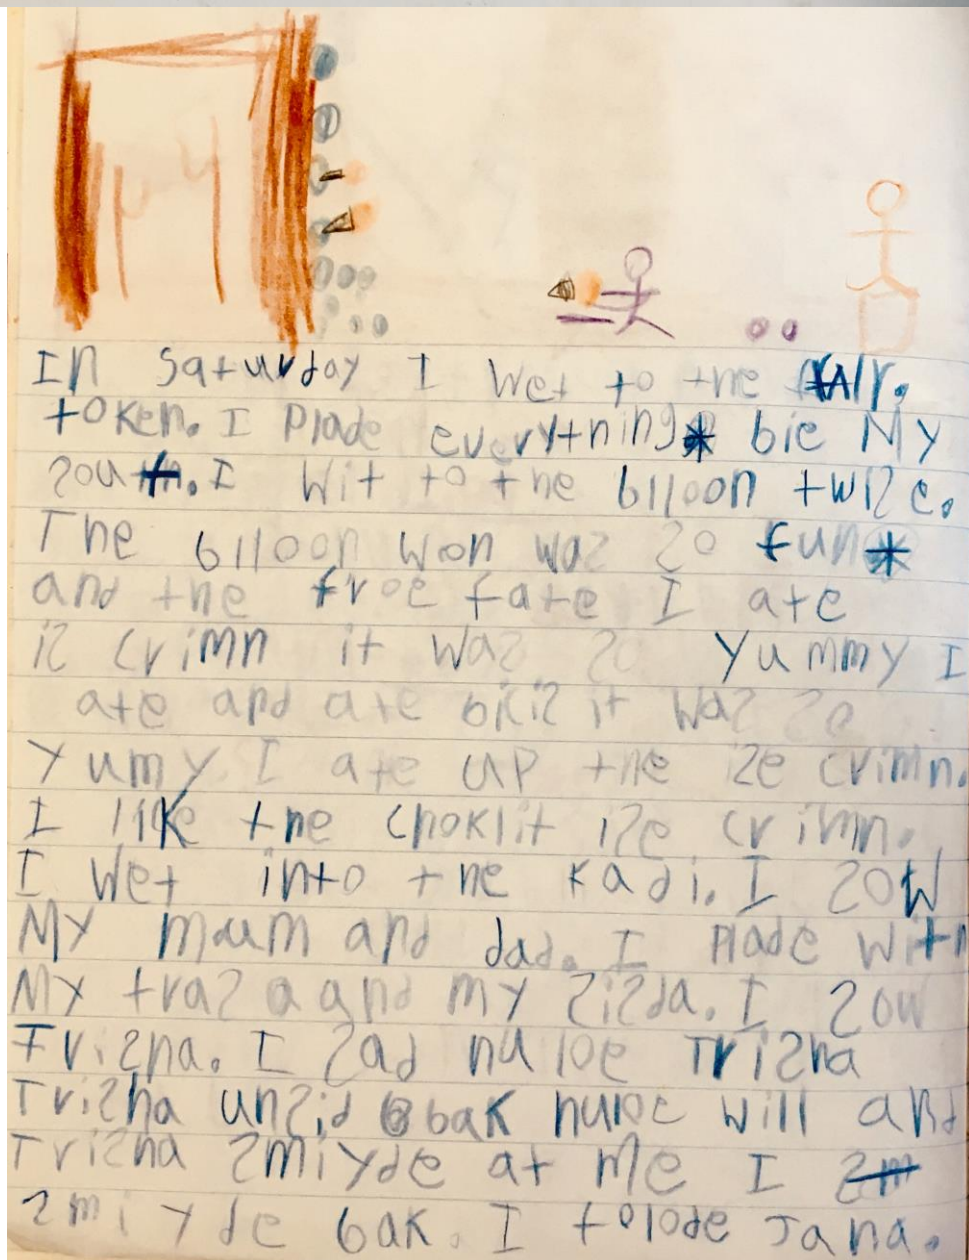 In Saturday I wet to the fair.
token. I plade everything bie My
south. I wit to the billoon twise.
The billoon won was so fun
and the froe fate I ate
is crimn it was so yummy I
ate and ate bkis it was so
yumy I ate up the ise crimn.
I like the choklit ise crimn.
I wet into the kadi. I sow
My mum and dad. I plade with
My frasa and my sisda. I sow
Trisha. I sad huloe Trisha
Trisha unsid bak huloe will and
Trisha smiyde at me I sm
smiyde bak. I tolode Jana.